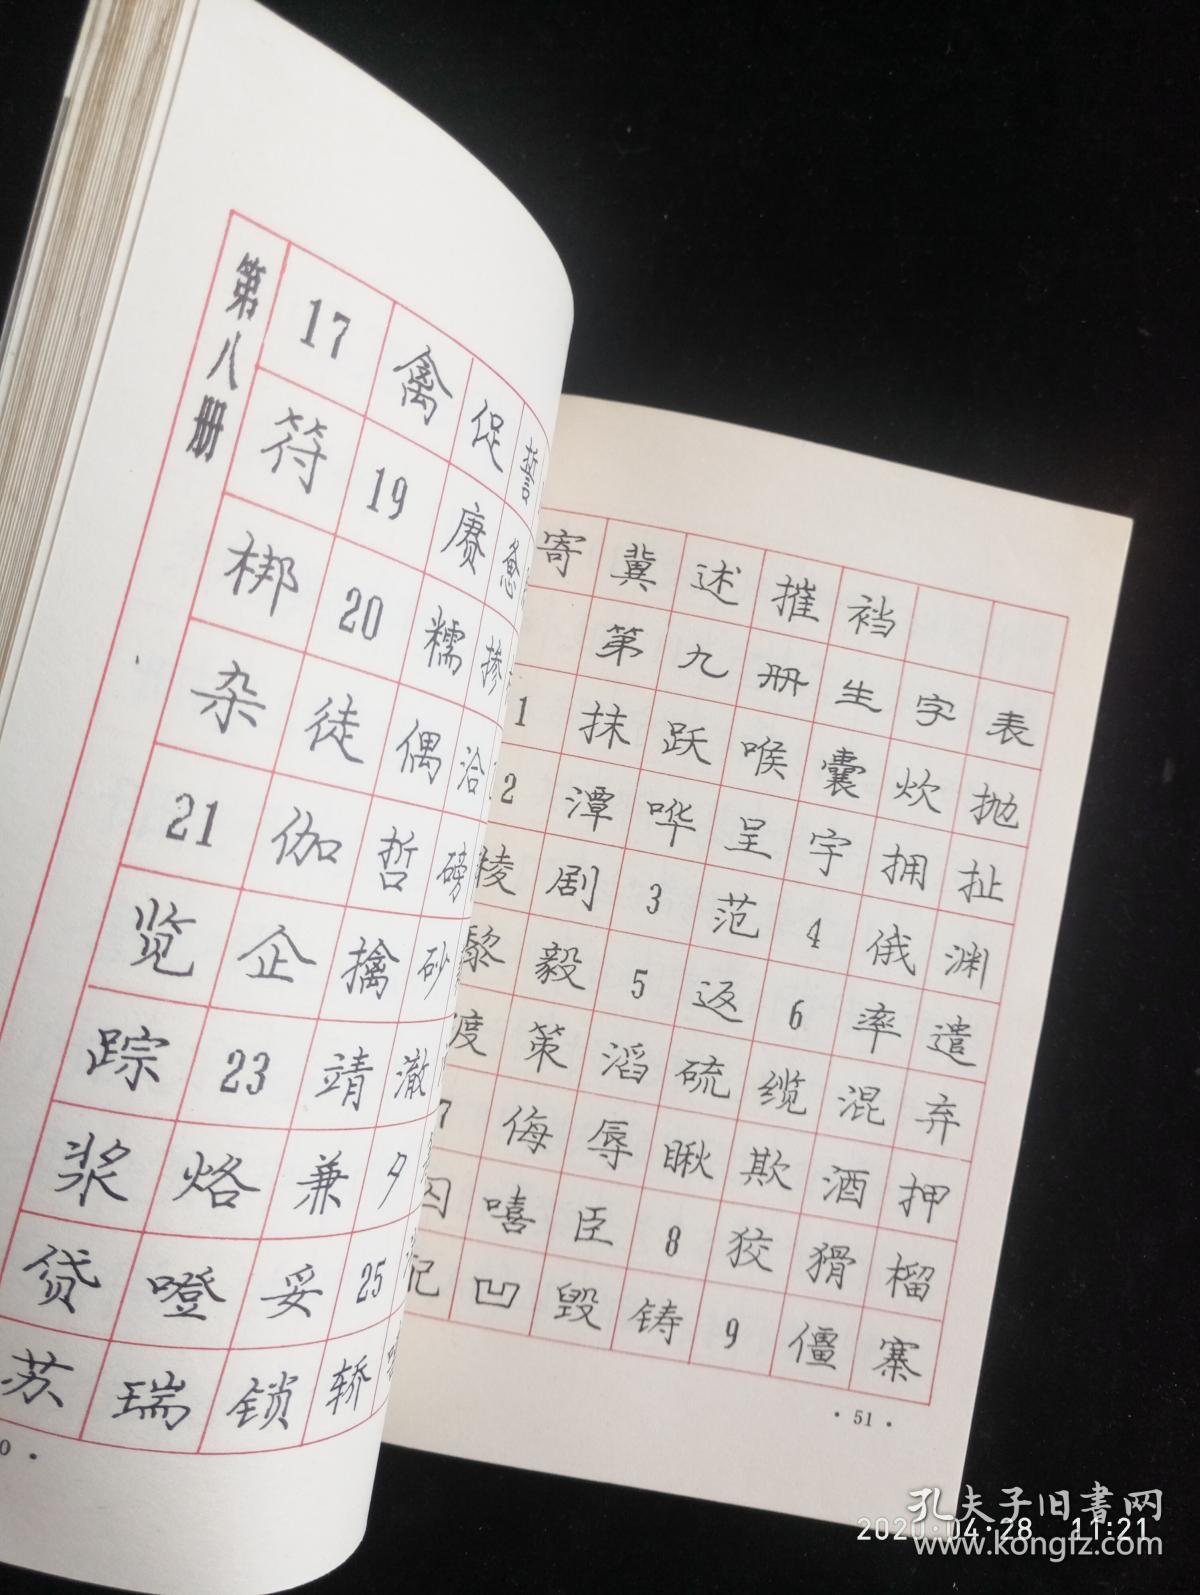 第八册
17 禽 促 誓
符 19 赛 惫
梆 20 糯 掺
杂 徒 偶 洽
21 伽 哲 磅
览 企 擒 砂
踪 23 靖 澈
浆 烙 兼 夕
贷 噔 妥 25
苏 瑞 锁 轿
寄 冀 述 摧 裆
第 九 册 生 字 表
1 抹 跃 喉 囊 炊 抛
2 潭 哗 呈 宇 拥 扯
棱 剧 3 范 4 俄 渊
黎 毅 5 返 6 率 遣
渡 策 滔 硫 缆 混 弃
7 侮 辱 瞅 欺 酒 押
囚 嘻 臣 8 狡 猾 榴
凹 毁 铸 9 僵 寨
· 51 ·
孔夫子旧書网
2020·04·28 11:21
www.kongfz.com